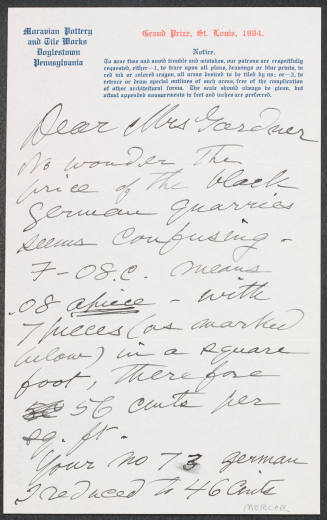 Moravian Pottery
and Tile Works
Doylestown
Pennsylvania
Grand Prize, St. Louis, 1904.
Notice.
To save time and avoid trouble and mistakes, our patrons are respectfully
requested, either—1, to trace upon all plans, drawings or blue prints, in
red ink or colored crayon, all areas desired to be tiled by us: or—2, to
retrace or draw special outlines of such areas, free of the complication
of other architectural forms. The scale should always be given, but
actual appended measurements in feet and inches are preferred.
Dear Mrs Gardner
No wonder the
price of the black
German quarries
seems confusing –
7–08.c. means
.08 apiece – with
7 pieces (as marked
below) in a square
foot, therefore
56 cents per
sq. ft.
Your no 73 german
I reduced to 46 cents
MERCER